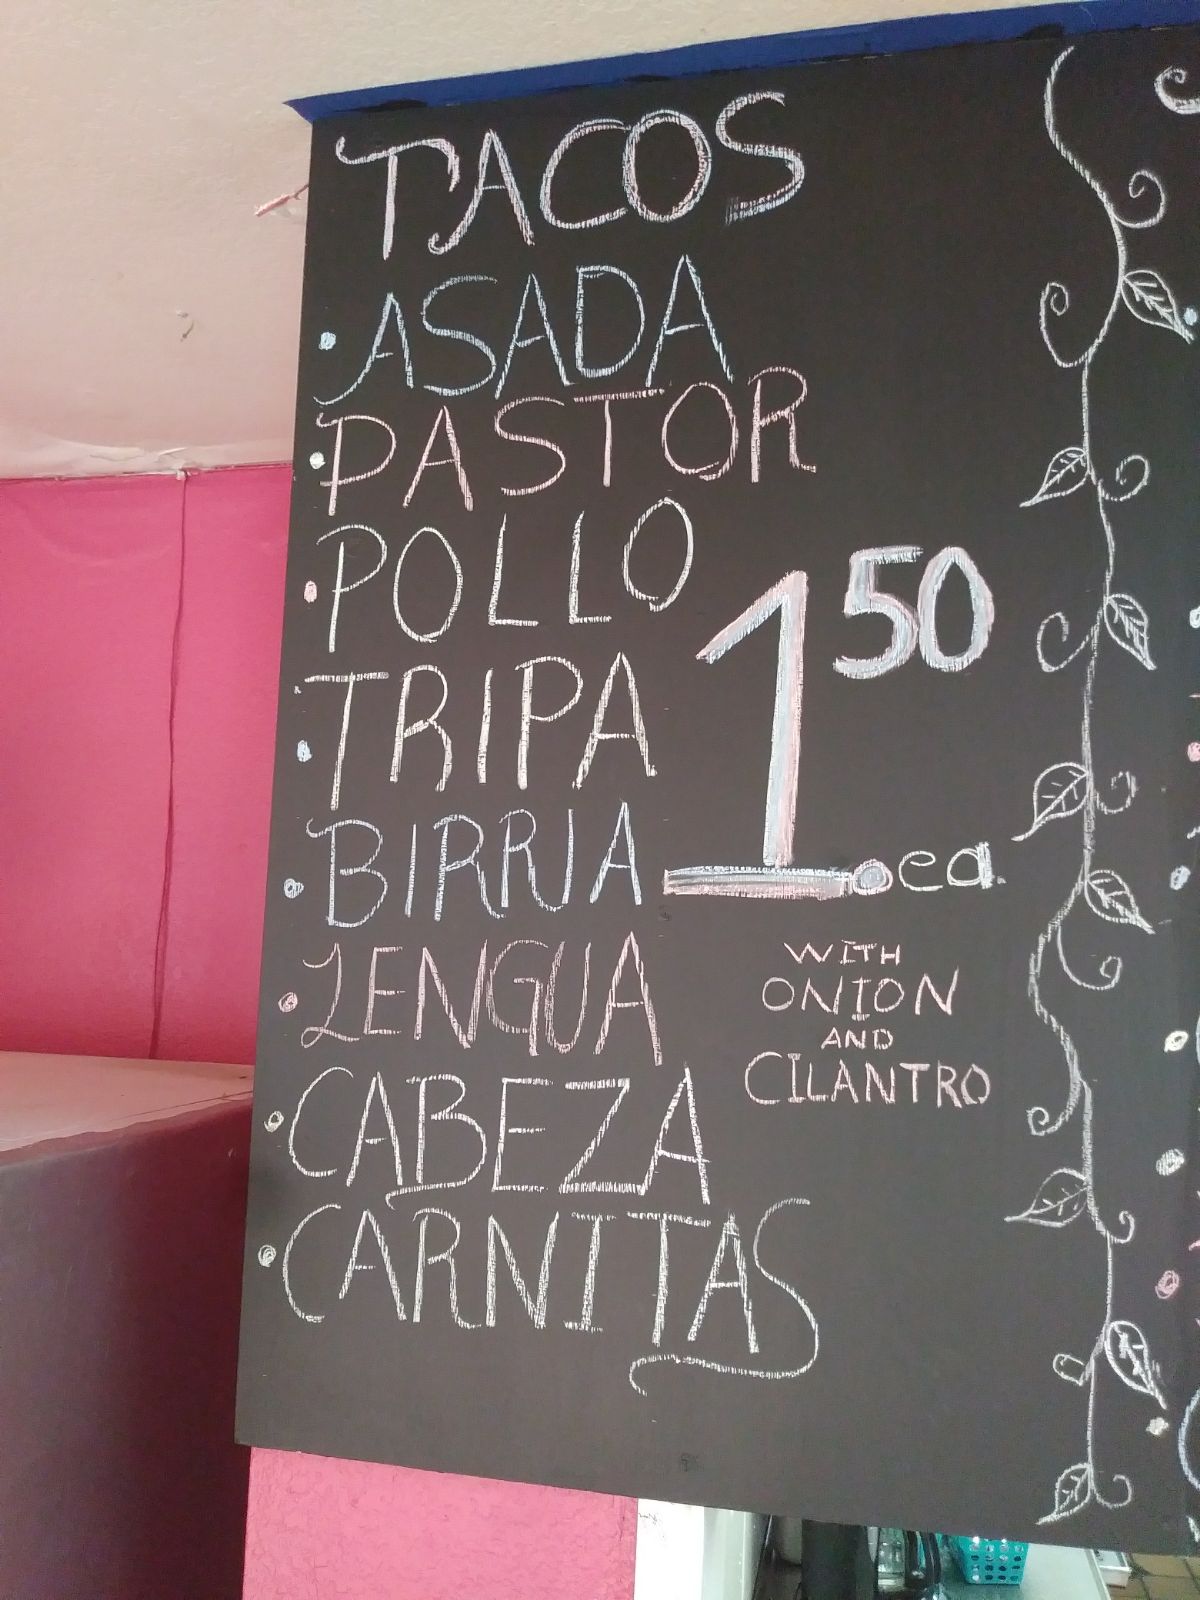 TACOS
• ASADA
• PASTOR
• POLLO
• TRIPA
• BIRRIA
• LENGUA
• CABEZA
• CARNITAS
1.50 ea.
WITH
ONION
AND
CILANTRO